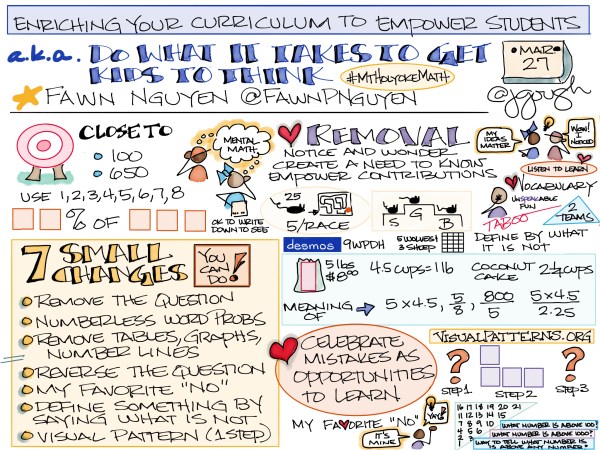 ENRICHING YOUR CURRICULUM TO EMPOWER STUDENTS
a.k.a. DO WHAT IT TAKES TO GET
KIDS TO THINK #MTHOLYOKEMATH
MAR
27
FAWN NGUYEN @FAWNPNGUYEN
@jgough
CLOSE TO
100
650
USE 1,2,3,4,5,6,7,8
% OF
MENTAL
MATH
OK TO WRITE
DOWN TO SEE
REMOVAL
NOTICE AND WONDER
CREATE A NEED TO KNOW
EMPOWER CONTRIBUTIONS
MY
IDEAS
MATTER
WOW!
I
NOTICED
LISTEN TO LEARN
25
5/RACE
S G B
VOCABULARY
UNSPEAKABLE
FUN
TABOO
2
TEAMS
DEFINE BY WHAT
IT IS NOT
desmos 9WPDH 5 WOLVES
3 SHEEP
7 SMALL
CHANGES
YOU
CAN
DO!
REMOVE THE QUESTION
NUMBERLESS WORD PROBS
REMOVE TABLES, GRAPHS,
NUMBER LINES
REVERSE THE QUESTION
MY FAVORITE "NO"
DEFINE SOMETHING BY
SAYING WHAT IS NOT
VISUAL PATTERN (1 STEP)
5 lbs
$8.00
4.5 CUPS = 1 lb COCONUT
CAKE 2 1/4 CUPS
MEANING
OF
5 x 4.5, 5/8, 800/5 5 x 4.5/2.25
CELEBRATE
MISTAKES AS
OPPORTUNITIES
TO LEARN
MY FAVORITE "NO"
IT'S
MINE
YAY!
VISUALPATTERNS.ORG
? ?
STEP 1 STEP 2 STEP 3
16 17 18 19 20 21
11 12 13 14 15
7 8 9 10 WHAT NUMBER IS ABOVE 100?
4 5 6 WHAT NUMBER IS ABOVE 1000?
2 3 WAY TO TELL WHAT NUMBER
IS ABOVE ANY NUMBER?